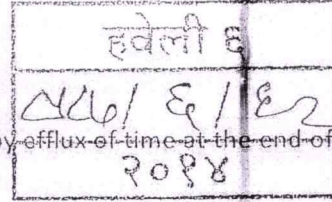 हवेली ६
/ ६ /
by efflux of time at the end of
२०१४